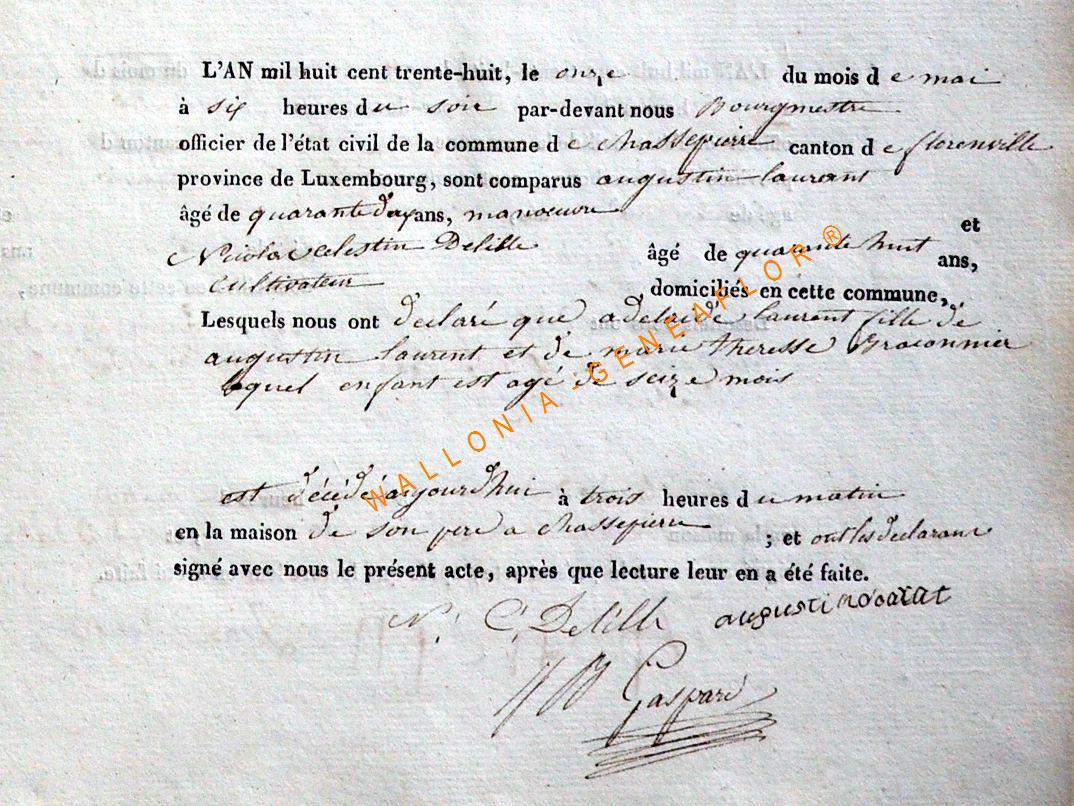 L'AN mil huit cent trente-huit, le onze du mois de mai
à six heures du soir par-devant nous Bourgmestre
officier de l'état civil de la commune de chassepierre canton de florenville
province de Luxembourg, sont comparus augustin laurent
âgé de quarante deux ans, manoeuvre et
Nicolas Celestin Delille âgé de quarante huit ans,
Cultivateur domiciliés en cette commune,
Lesquels nous ont declaré que adelaide laurent fille de
augustin laurent et de marie theresse Braconnier
lequel enfant est agé de seize mois
est décédé aujourd'hui à trois heures du matin
en la maison de son pere a chassepierre ; et ont les declarant
signé avec nous le présent acte, après que lecture leur en a été faite.
N. C. Delille augustin
Gaspard
WALLONIA-GENEAFLOR®